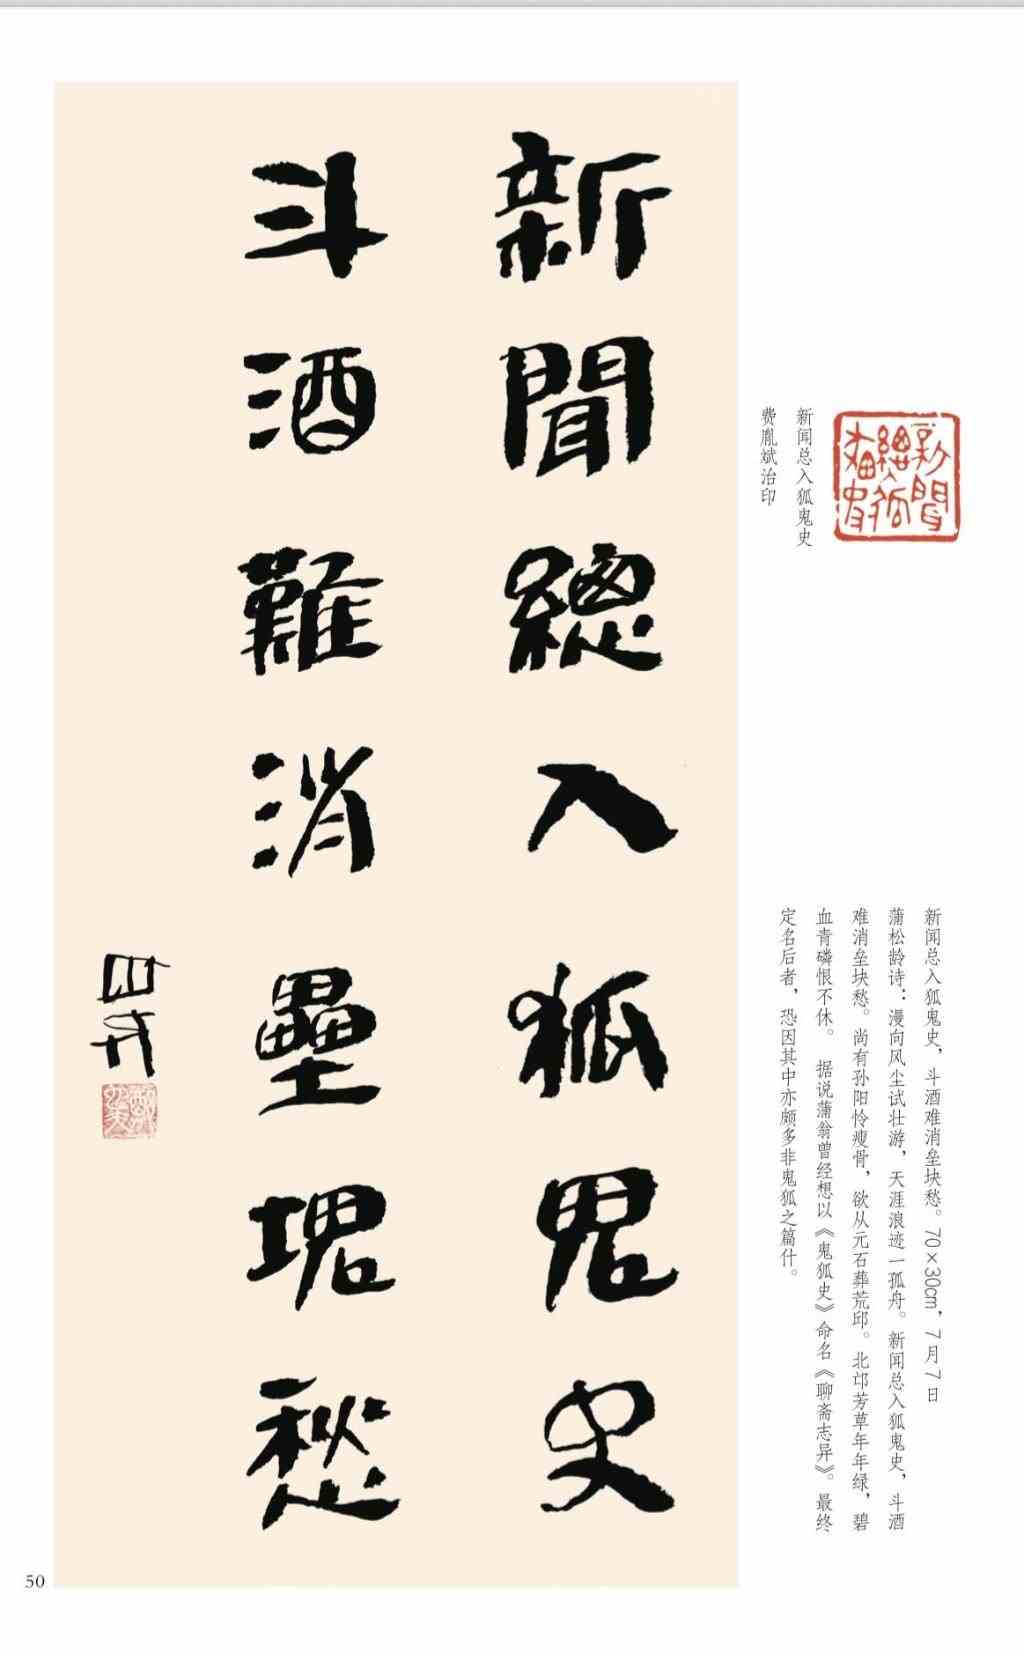 新闻总入狐鬼史，斗酒难消垒块愁。70×30cm，7月7日
蒲松龄诗：漫向风尘试壮游，天涯浪迹一孤舟。新闻总入狐鬼史，斗酒
难消垒块愁。尚有孙阳怜瘦骨，欲从元石葬荒邱。北邙芳草年年绿，碧
血青磷恨不休。 据说蒲翁曾经想以《鬼狐史》命名《聊斋志异》。最终
定名后者，恐因其中亦颇多非鬼狐之篇什。
新聞總入狐鬼史
新闻总入狐鬼史
费胤斌治印
新聞總入狐鬼史
斗酒難消壘塊愁
50